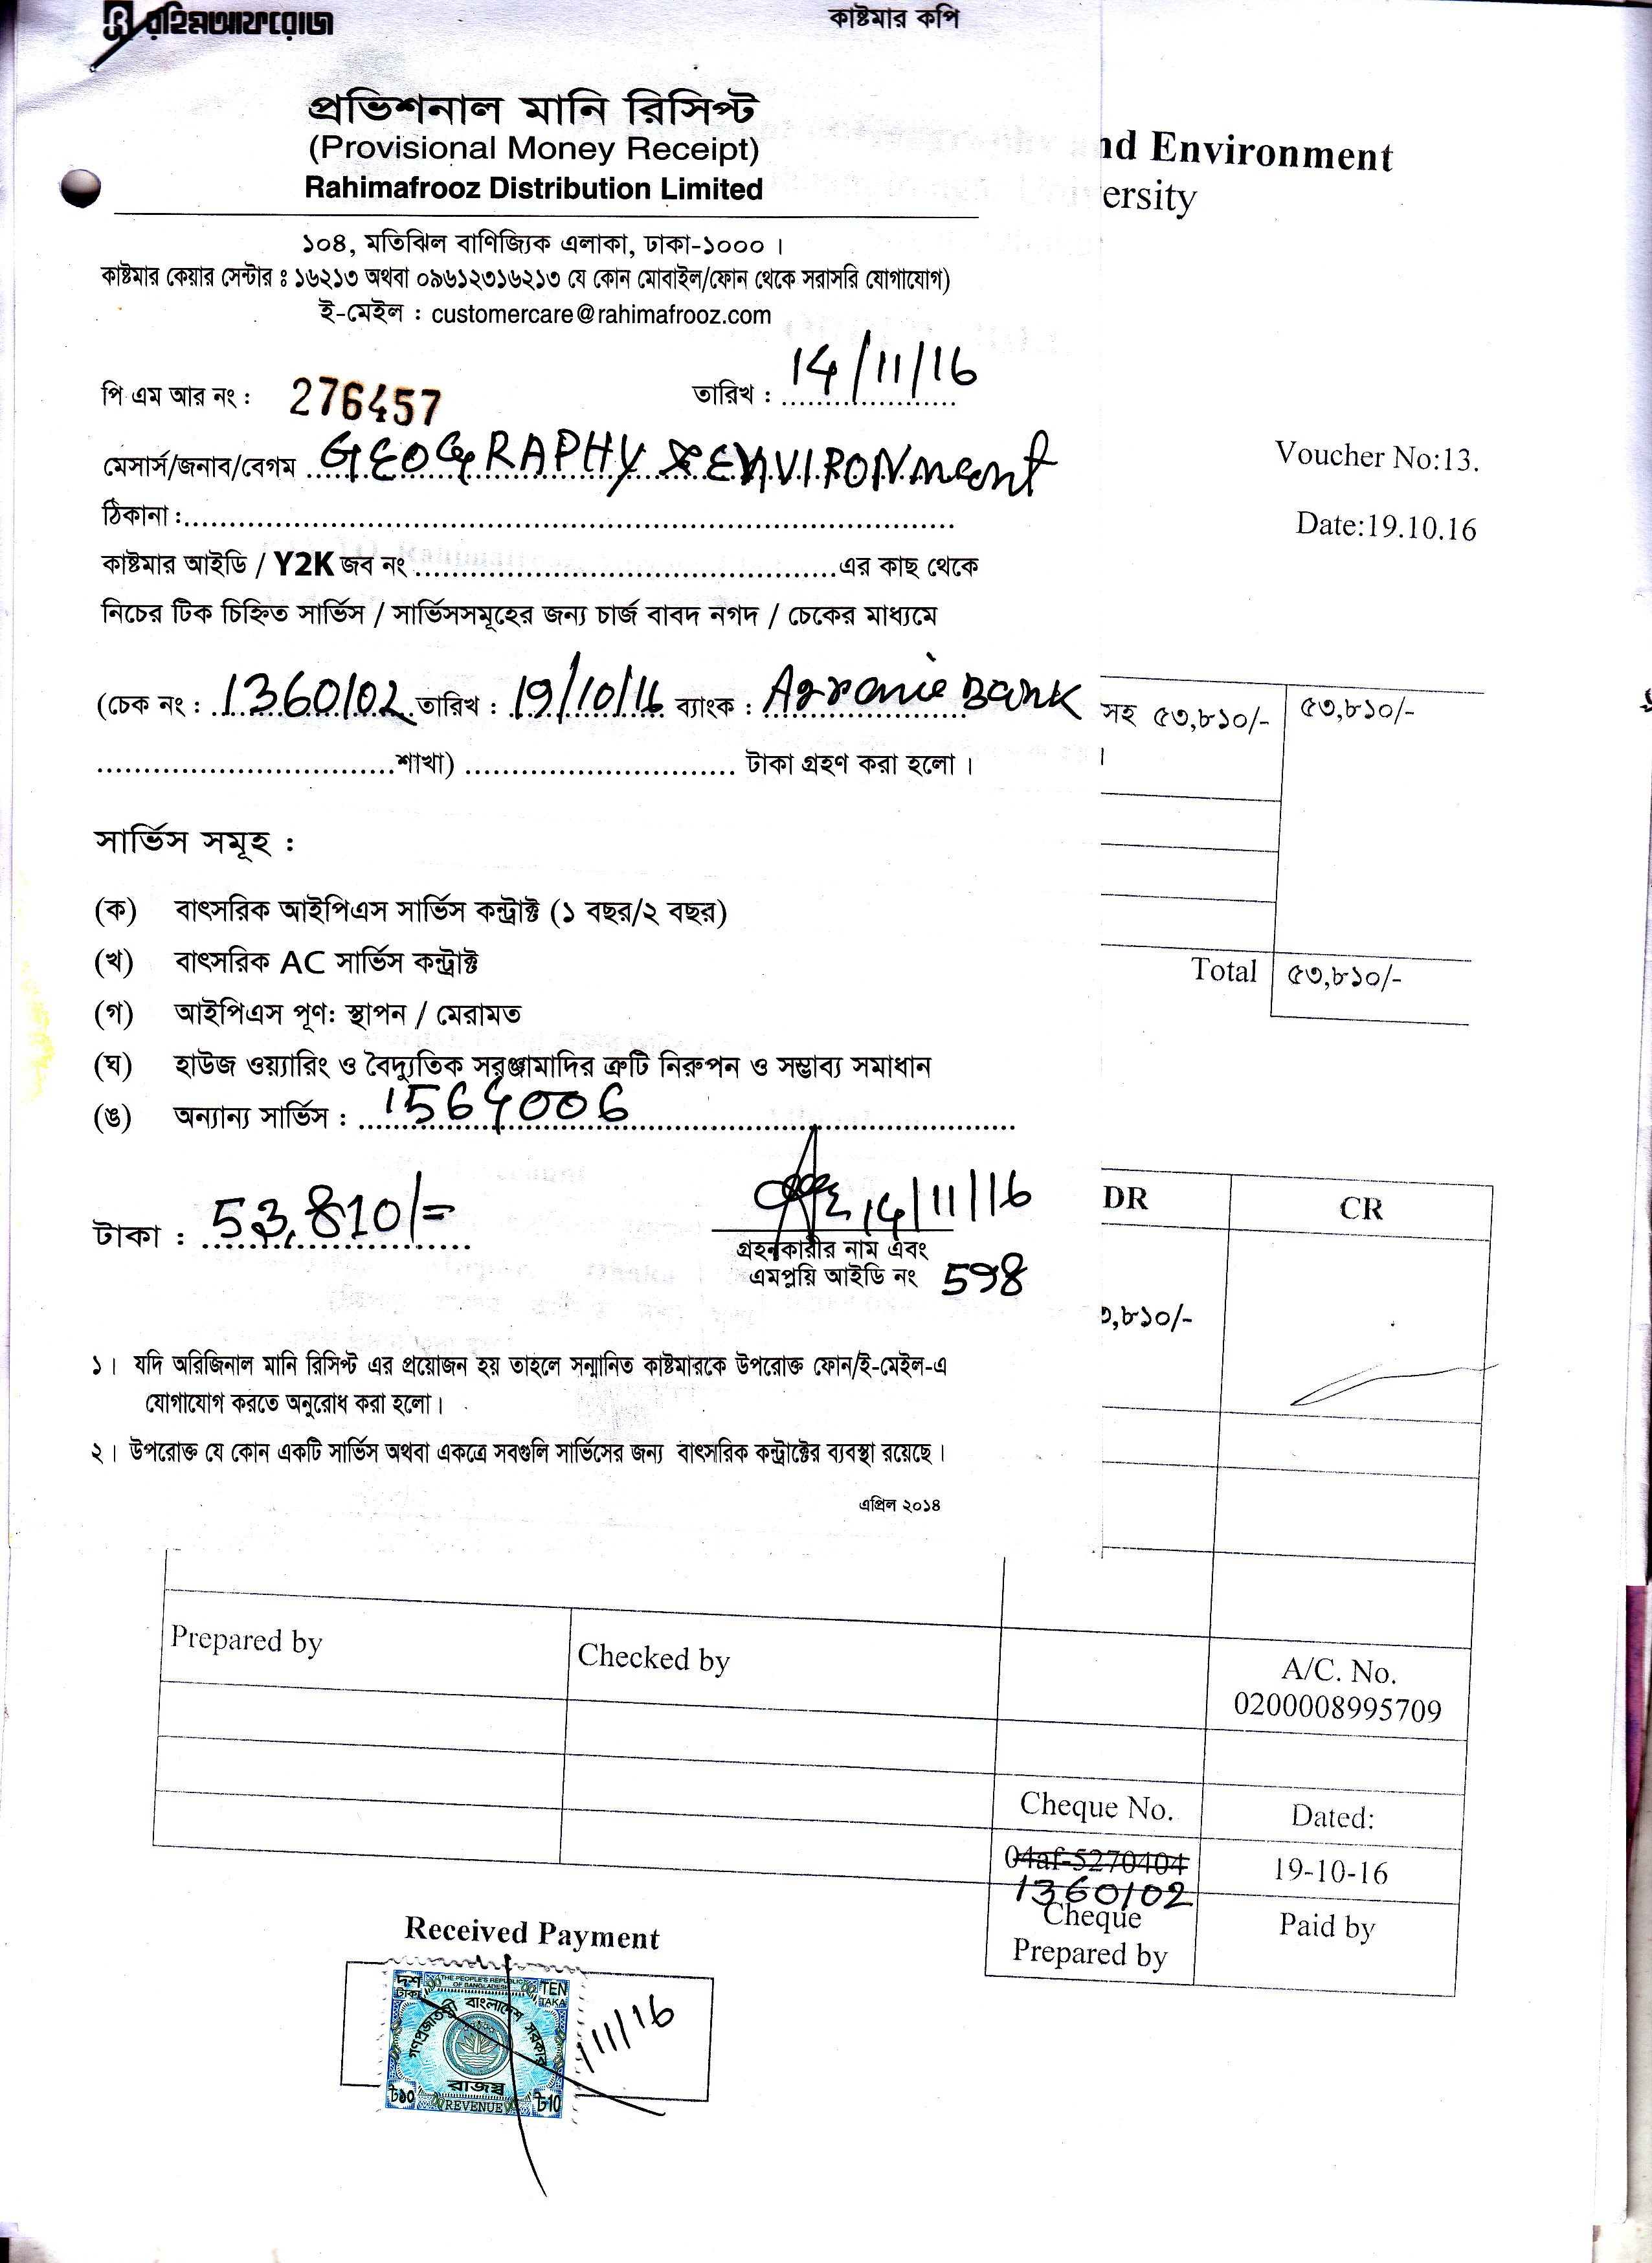 রহিমআফরোজ
কাষ্টমার কপি
প্রভিশনাল মানি রিসিপ্ট
(Provisional Money Receipt)
Rahimafrooz Distribution Limited
১০৪, মতিঝিল বাণিজ্যিক এলাকা, ঢাকা-১০০০ ।
কাষ্টমার কেয়ার সেন্টার ঃ ১৬২১৩ অথবা ০৯৬১২৩১৬২১৩ যে কোন মোবাইল/ফোন থেকে সরাসরি যোগাযোগ)
ই-মেইল : customercare@rahimafrooz.com
পি এম আর নং : 276457 তারিখ : 14/11/16
মেসার্স/জনাব/বেগম GEOGRAPHY & ENVIRONment
ঠিকানা :
কাষ্টমার আইডি / Y2K জব নং এর কাছ থেকে
নিচের টিক চিহ্নিত সার্ভিস / সার্ভিসসমূহের জন্য চার্জ বাবদ নগদ / চেকের মাধ্যমে
(চেক নং : 1360102 তারিখ : 19/10/16 ব্যাংক : Agranie Bank
শাখা) টাকা গ্রহণ করা হলো ।
সার্ভিস সমূহ :
(ক) বাৎসরিক আইপিএস সার্ভিস কন্ট্রাক্ট (১ বছর/২ বছর)
(খ) বাৎসরিক AC সার্ভিস কন্ট্রাক্ট
(গ) আইপিএস পূণ: স্থাপন / মেরামত
(ঘ) হাউজ ওয়্যারিং ও বৈদ্যুতিক সরঞ্জামাদির ত্রুটি নিরুপন ও সম্ভাব্য সমাধান
(ঙ) অন্যান্য সার্ভিস : 1564006
টাকা : 53,810/=
14/11/16
গ্রহনকারীর নাম এবং
এমপ্লয়ি আইডি নং 598
১। যদি অরিজিনাল মানি রিসিপ্ট এর প্রয়োজন হয় তাহলে সন্মানিত কাষ্টমারকে উপরোক্ত ফোন/ই-মেইল-এ
যোগাযোগ করতে অনুরোধ করা হলো।
২। উপরোক্ত যে কোন একটি সার্ভিস অথবা একত্রে সবগুলি সার্ভিসের জন্য বাৎসরিক কন্ট্রাক্টের ব্যবস্থা রয়েছে।
এপ্রিল ২০১৪
nd Environment
ersity
Voucher No:13.
Date:19.10.16
সহ ৫৩,৮১০/- ৫৩,৮১০/-
।
Total ৫৩,৮১০/-
DR CR
৩,৮১০/-
Prepared by Checked by A/C. No.
0200008995709
Cheque No. Dated:
04af-5270404 19-10-16
1360102
Cheque Paid by
Prepared by
Received Payment
দশ টাকা THE PEOPLE'S REPUBLIC OF BANGLADESH TEN TAKA
গণপ্রজাতন্ত্রী বাংলাদেশ সরকার
রাজস্ব
৳১০ REVENUE ৳10
/11/16